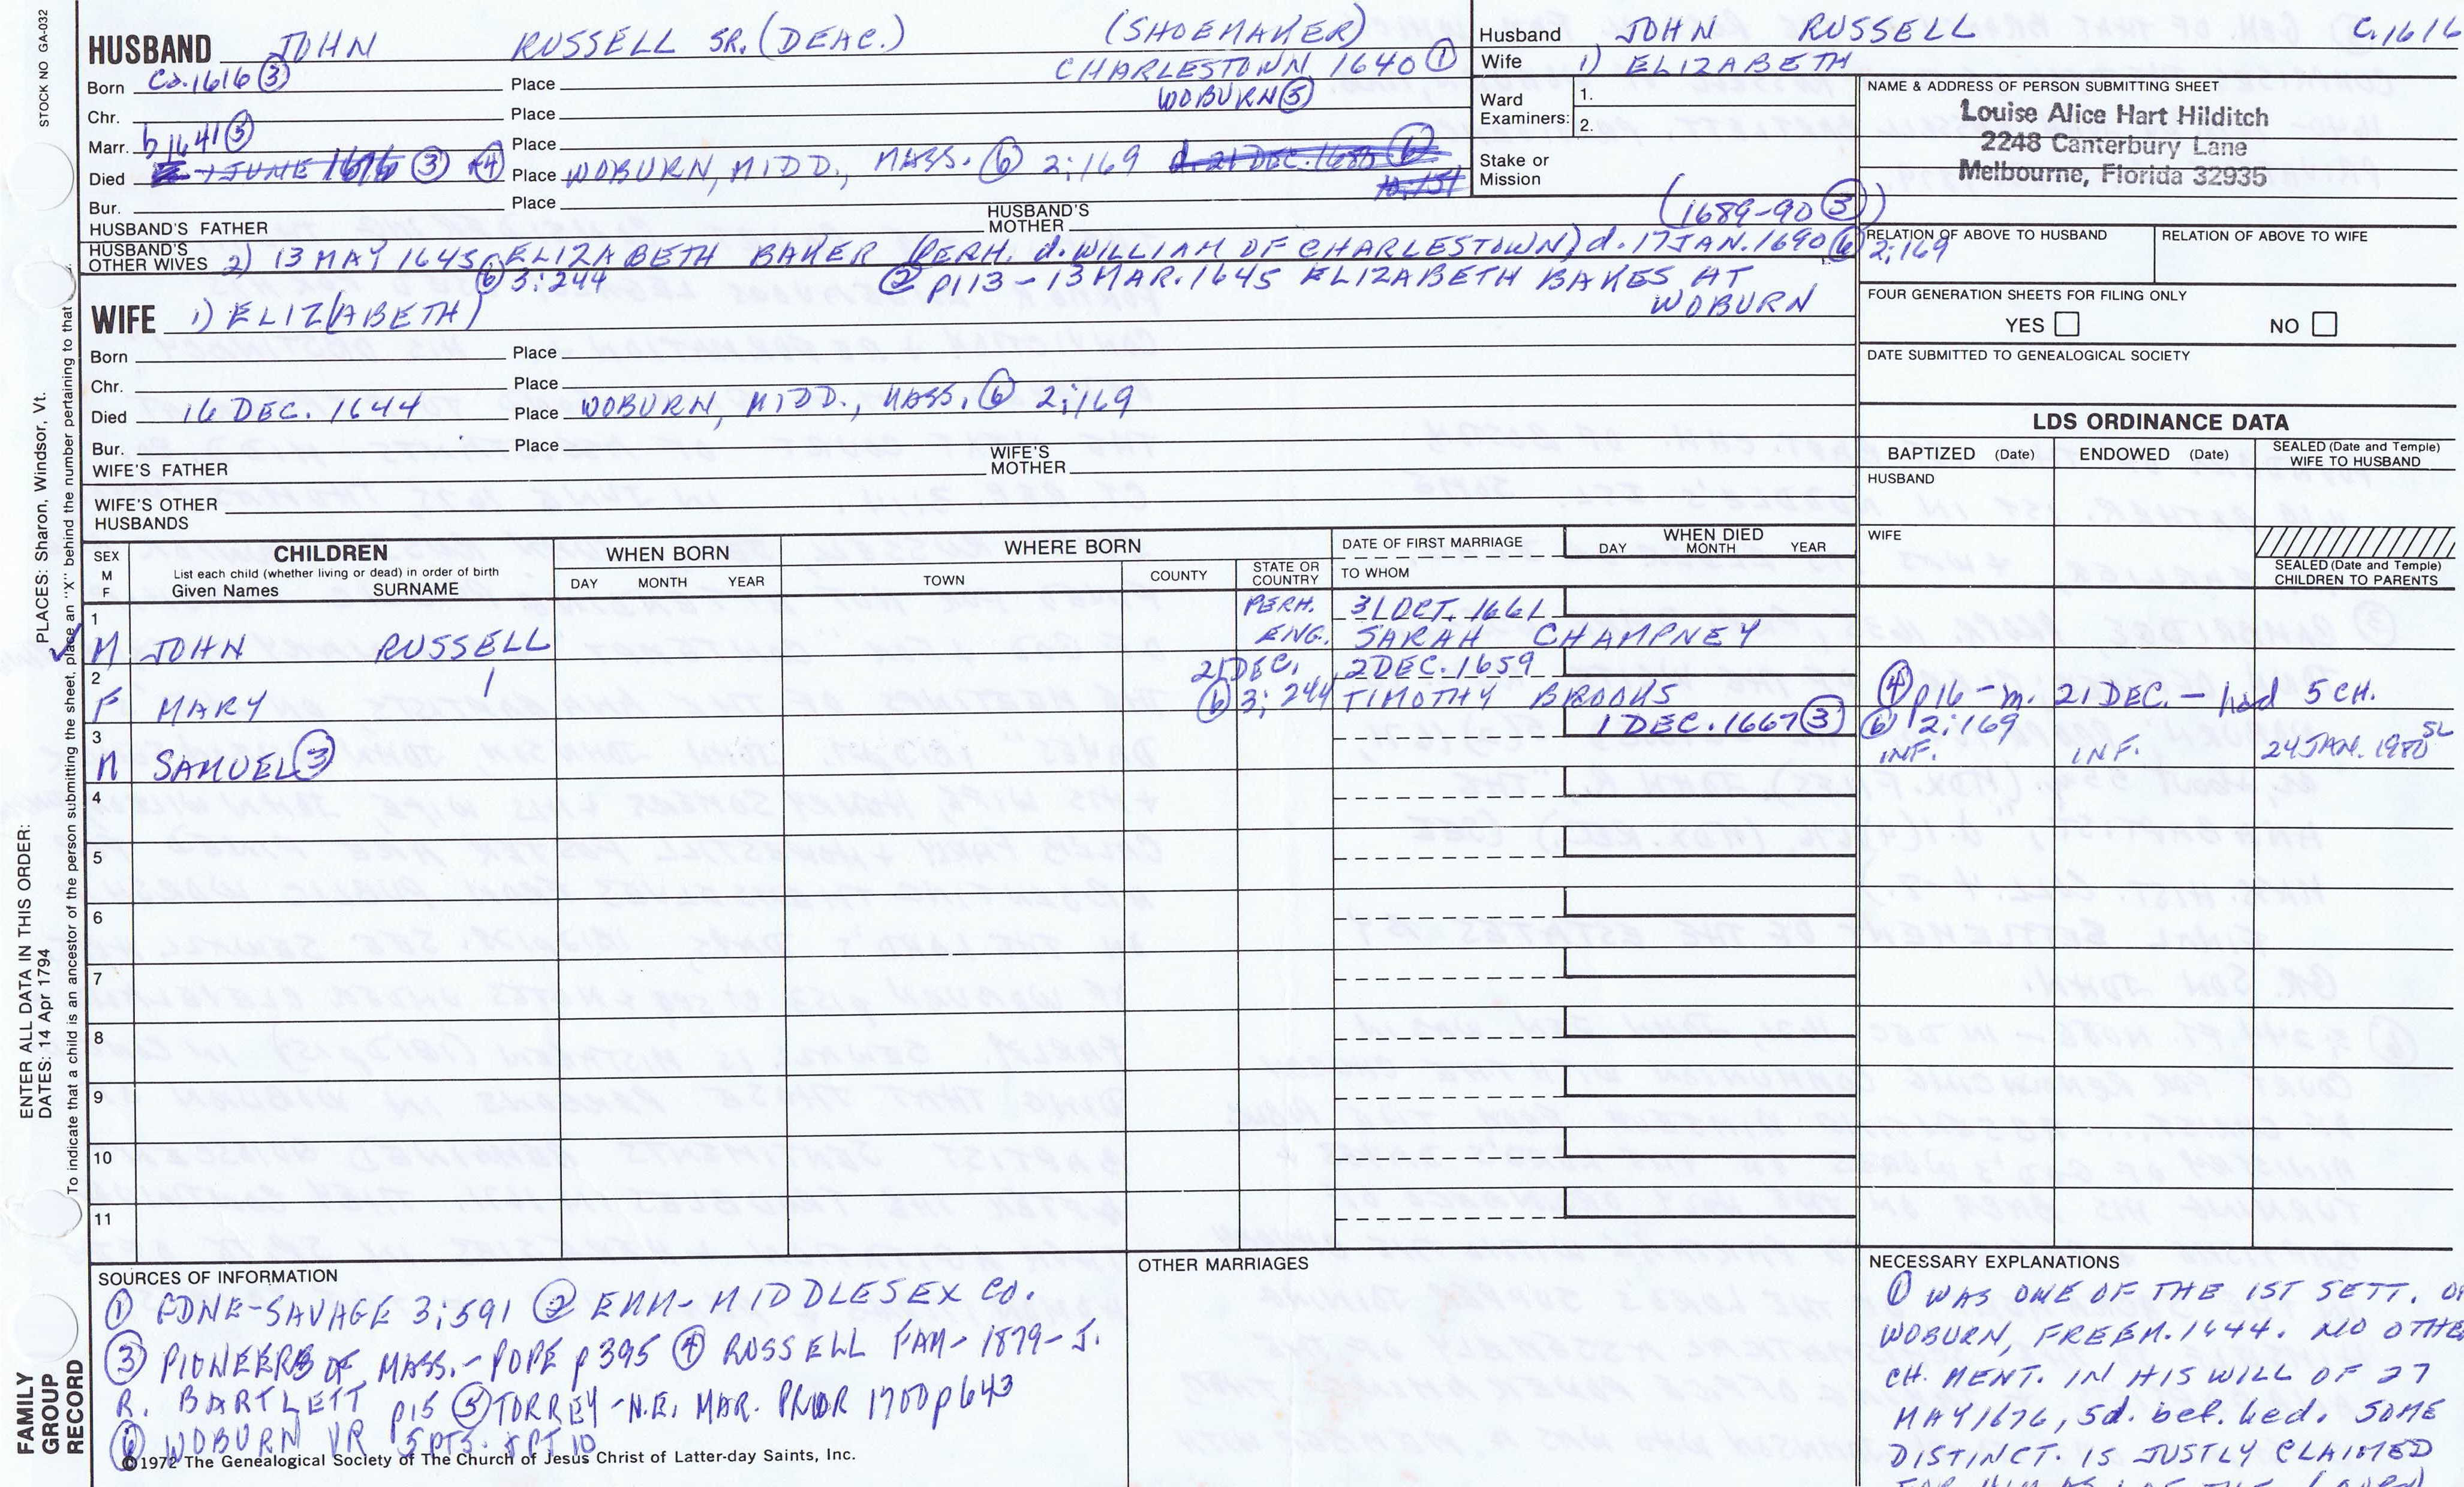 STOCK NO GA-032
HUSBAND JOHN RUSSELL SR. (DEAC.) (SHOEMAKER)
Born Ca. 1616 ③ Place CHARLESTOWN 1640 ①
Chr. Place WOBURN ⑤
Marr. b 1641 ⑤ Place
Died 1 JUNE 1676 ③ ④ Place WOBURN, MIDD., MASS. ⑥ 2:169 d. 21 DEC. 1680 ⑥
10:151
Bur. Place
HUSBAND'S FATHER HUSBAND'S MOTHER (1689-90 ③)
HUSBAND'S OTHER WIVES 2) 13 MAY 1645 ELIZABETH BAKER (PERH. d. WILLIAM OF CHARLESTOWN) d. 17 JAN. 1690 ⑥ 2:169
⑥ 3:244 ② p113 - 13 MAR. 1645 ELIZABETH BAKES AT
WOBURN
WIFE 1) ELIZ(ABETH)
Born Place
Chr. Place
Died 16 DEC. 1644 Place WOBURN, MIDD., MASS. ⑥ 2:169
Bur. Place
WIFE'S FATHER WIFE'S MOTHER
WIFE'S OTHER HUSBANDS
Husband JOHN RUSSELL C. 1616
Wife 1) ELIZABETH
Ward Examiners: 1.
2.
Stake or Mission
NAME & ADDRESS OF PERSON SUBMITTING SHEET
Louise Alice Hart Hilditch
2248 Canterbury Lane
Melbourne, Florida 32935
RELATION OF ABOVE TO HUSBAND RELATION OF ABOVE TO WIFE
FOUR GENERATION SHEETS FOR FILING ONLY
YES NO
DATE SUBMITTED TO GENEALOGICAL SOCIETY
LDS ORDINANCE DATA
BAPTIZED (Date) ENDOWED (Date) SEALED (Date and Temple) WIFE TO HUSBAND
HUSBAND
WIFE
SEALED (Date and Temple) CHILDREN TO PARENTS
SEX M F CHILDREN List each child (whether living or dead) in order of birth Given Names SURNAME
WHEN BORN DAY MONTH YEAR
WHERE BORN TOWN COUNTY STATE OR COUNTRY
DATE OF FIRST MARRIAGE TO WHOM
WHEN DIED DAY MONTH YEAR
1 PERH. 31 OCT. 1661
M JOHN RUSSELL ENG. SARAH CHAMPNEY
2 21 DEC. 2 DEC. 1659
F MARY ⑥ 3:244 TIMOTHY BROOKS ④ p16 - m. 21 DEC. - had 5 CH.
3 1 DEC. 1667 ③ ⑥ 2:169
M SAMUEL ③ INF. INF. 24 JAN. 1980 SL
4
5
6
7
8
9
10
11
SOURCES OF INFORMATION
① FDNE-SAVAGE 3:591 ② EMM-MIDDLESEX CO.
③ PIONEERS OF MASS.-POPE p395 ④ RUSSELL FAM-1879-J.
R. BARTLETT p15 ⑤ TORREY-N.E. MAR. PRIOR 1700 p643
⑥ WOBURN VR 5 PTS. & PT 10
©1972 The Genealogical Society of The Church of Jesus Christ of Latter-day Saints, Inc.
OTHER MARRIAGES
NECESSARY EXPLANATIONS
① WAS ONE OF THE 1ST SETT. OF
WOBURN, FREEM. 1644. NO OTHE
CH. MENT. IN HIS WILL OF 27
MAY 1676, 5d. bef. he d. SOME
DISTINCT. IS JUSTLY CLAIMED
FOR HIM AS 1 OF THE
ENTER ALL DATA IN THIS ORDER:
DATES: 14 Apr 1794 PLACES: Sharon, Windsor, Vt.
To indicate that a child is an ancestor of the person submitting the sheet, place an "X" behind the number pertaining to that
FAMILY GROUP RECORD